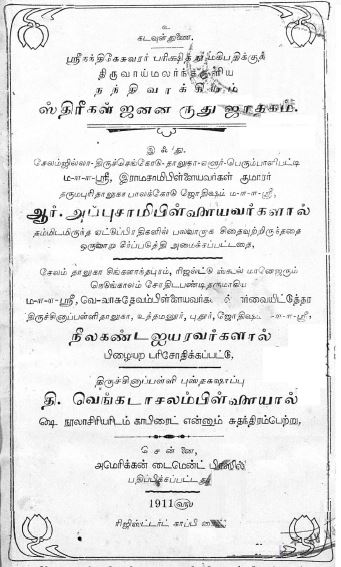 உ
கடவுள்துணை.
ஸ்ரீநந்திகேசுவரர் பரிக்ஷித்து மகிபதிக்குத்
திருவாய்மலர்ந்தருளிய
நந்திவாக்கியம்
ஸ்திரீகள் ஜனன ருது ஜாதகம்.
இஃது
சேலம்ஜில்லா திருச்செங்கோடு-தாலூகா-ஏளூர்-பெரும்பாளிபட்டி
ம-ள-ள-ஸ்ரீ, இராமசாமிபிள்ளையவர்கள் குமாரர்
தருமபுரிதாலூகா பாலக்கோடு ஜோதிஷம் ம-ள-ள-ஸ்ரீ,
ஆர். அப்புசாமிபிள்ளையவர்களால்
தம்மிடமிருந்த ஏட்டுப்பிரதிகளில் பலவாறாக சிதைவுற்றிருந்ததை
ஒருவாறு சீர்ப்படுத்தி அமைக்கப்பட்டதை,
சேலம் தாலூகா சிங்களாந்தபுரம், ரிஜஸ்ட்டு ஸ்கூல் மானேஜரும்
நெடுங்காலம் சோதிட பண்டிதருமாகிய
ம-ள-ள-ஸ்ரீ, வெ-வாசுதேவம்பிள்ளையவர்கள் பார்வையிட்டதோ
திருச்சினுப்பள்ளிதாலூகா, உத்தமனூர், புதூர், ஜோதிஷம் ம-ள-ள-ஸ்ரீ,
நீலகண்டஐயரவர்களால்
பிழையற பரிசோதிக்கப்பட்டு,
திருச்சினுப்பள்ளி புஸ்தகஷாப்பு
தி. வெங்கடாசலம்பிள்ளையால்
ஷை நூலாசிரியரிடம் காபிரைட் என்னும் சுதந்திரம்பெற்று,
சென்னை,
அமெரிக்கன் டைமென்ட் பிரஸில்
பதிப்பிக்கப்பட்டது
1911 ௵
ரிஜிஸ்டர்ட் காப்பி ரைட்